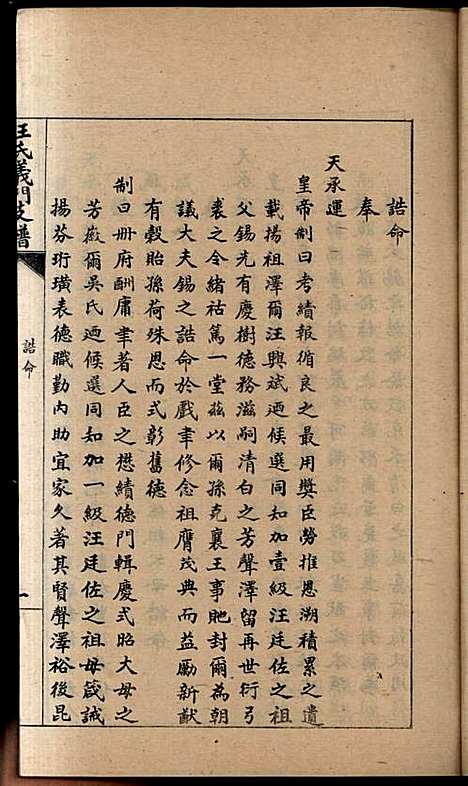 誥命
奉
天承運
皇帝制曰考績報循良之最用獎臣勞推恩溯積累之遺
載揚祖澤爾汪興斌廼候選同知加壹級汪廷佐之祖
父錫光有慶樹德務滋嗣清白之芳聲澤留再世衍弓
裘之令緒祜篤一堂茲以爾孫克襄王事貤封爾為朝
議大夫錫之誥命於戲聿修念祖膺茂典而益勵新猷
有穀貽孫荷殊恩而式彰舊德
制曰冊府酬庸聿著人臣之懋績德門輯慶式昭大母之
芳徽爾吳氏廼候選同知加一級汪廷佐之祖母箴誡
揚芬珩璜表德職勤內助宜家久著其賢聲澤裕後昆
汪氏義門支譜
誥命
一